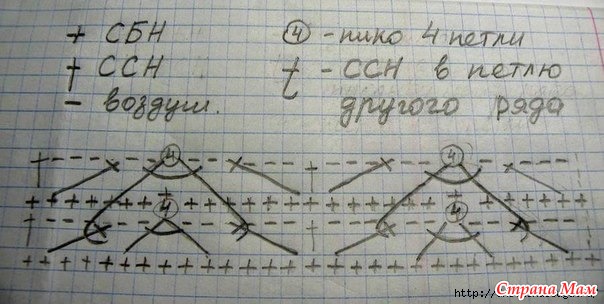 + СБН ④ - пико 4 петли
† ССН † - ССН в петлю
- воздуш. другого ряда
4 4
4 4
http://
Страна Мам